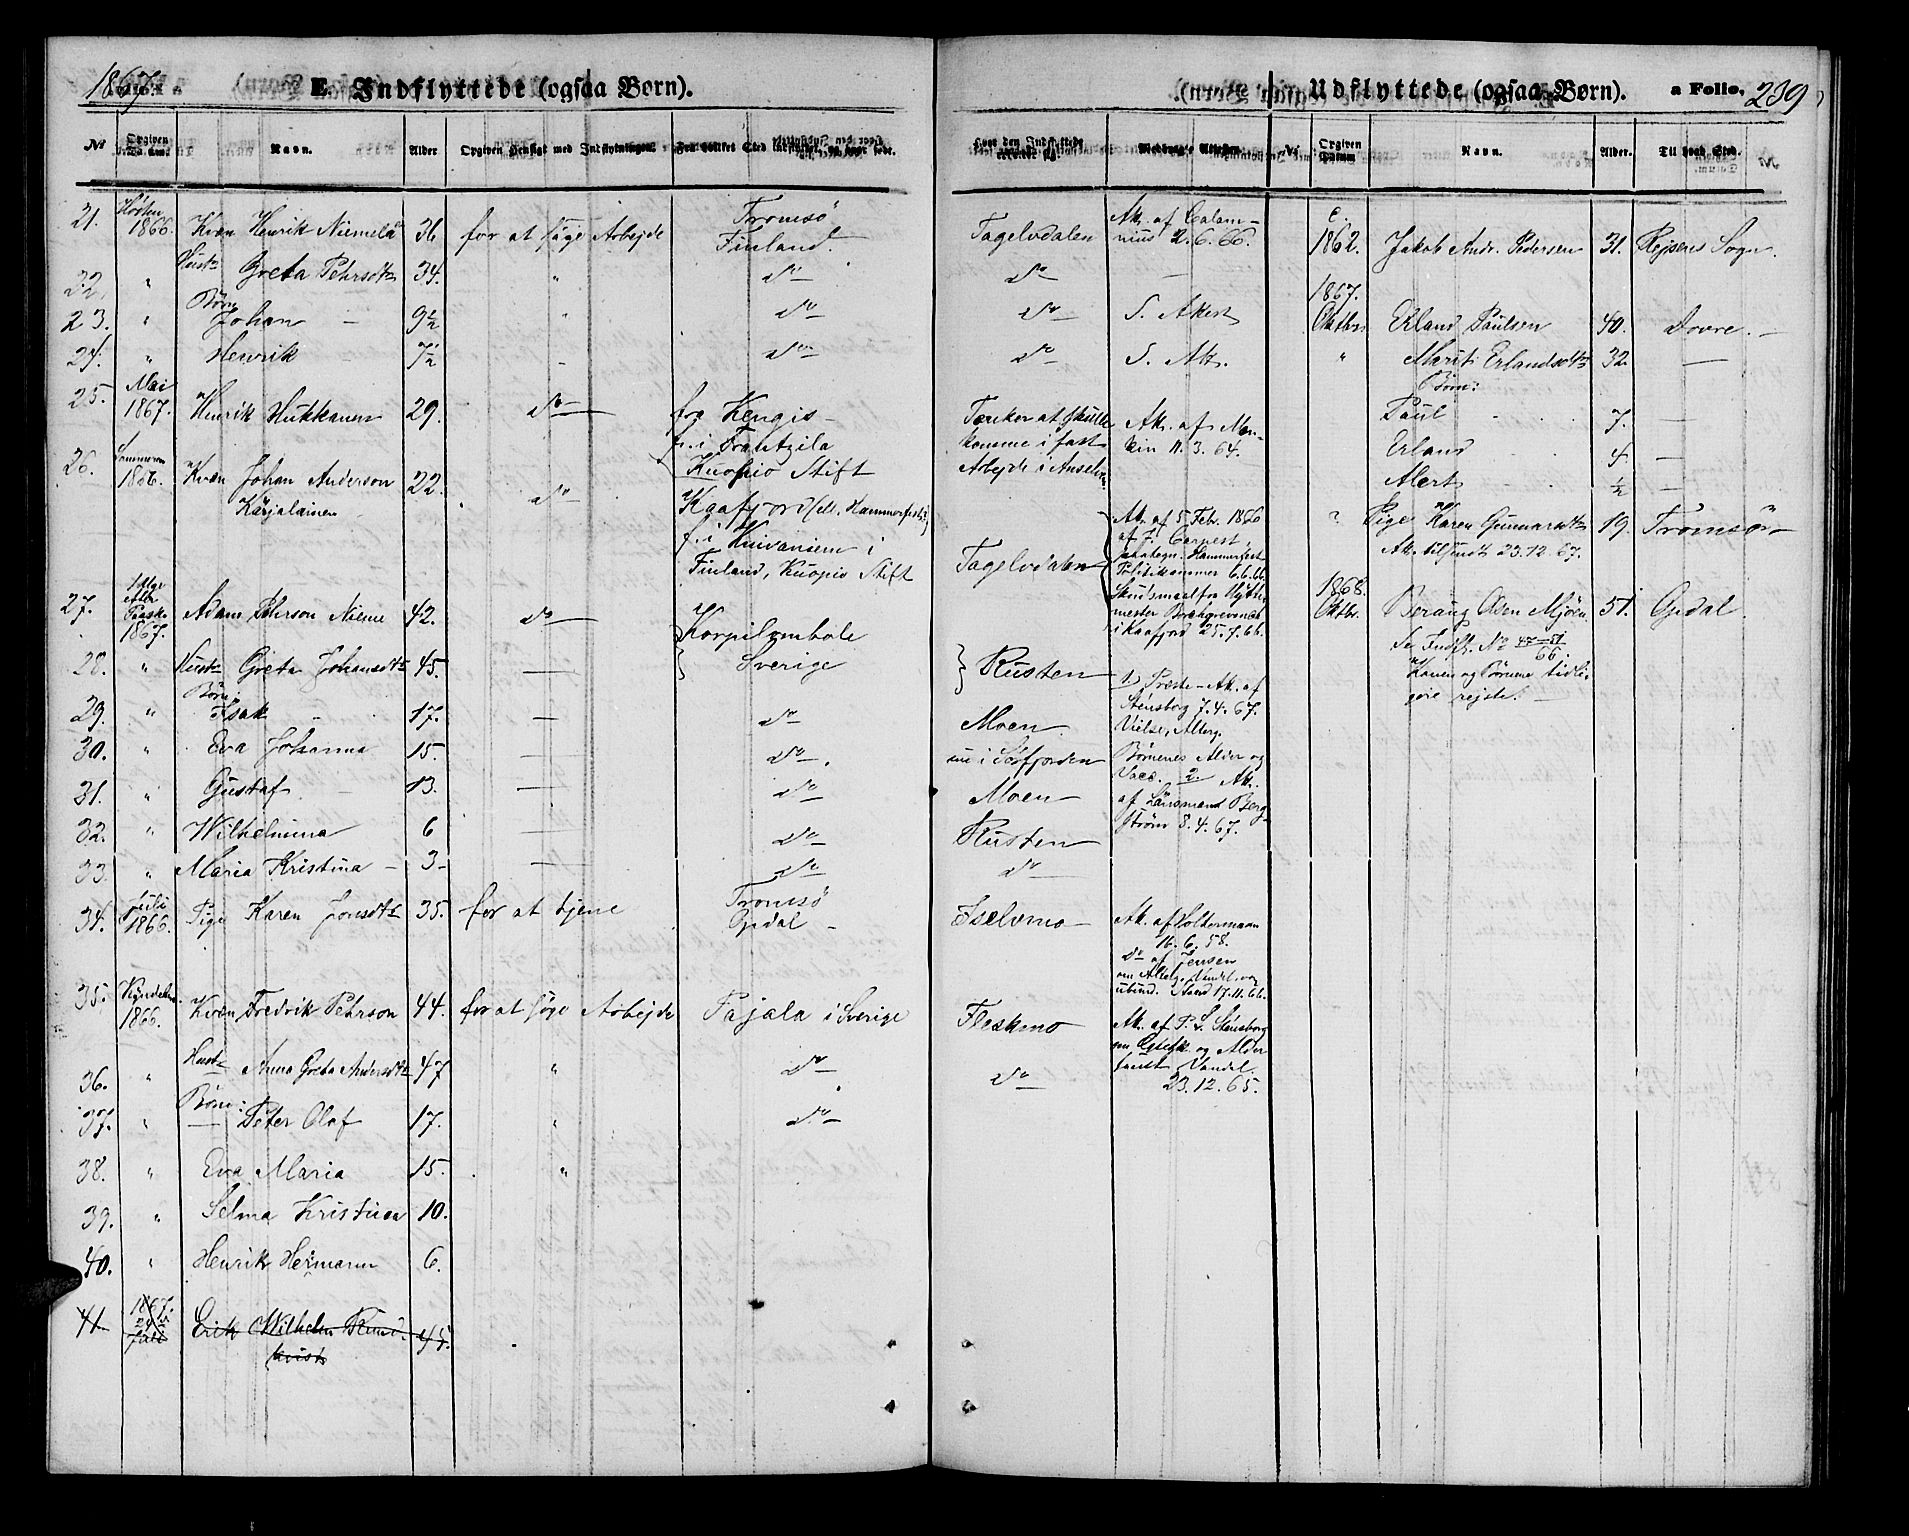 1867.
E. Indflyttede (ogsaa Børn).
№ Opgiven Datum Navn. Alder Opgiven Hensigt med Indflytningen. Fra hvilket Sted
21. Høsten 1866. Kvæn Henrik Niemelä 36. for at søge Arbejde Tromsö Finland. Tagelvdalen Ak. af Calamnius 2.6.66.
22. " Hustr Greta Pehrsdtr 34. " do do —
Børn
23. " Johan — 9½ " do do S. Akest
24. " Henrik — 7½ — do do S. Ak.
25. Mai 1867. Henrik Hukkanen 29. do fra Kengis f. i Frantzila Kuopio Stift Tænker at skulle komme i fast Arbejde i Anselv. Ak. af Monkin 11.3.64.
26. Sommeren 1866. Kvæn Johan Anderson Karjalainen 22. do Kaafjord/ell. Hammerfest f. i Kuivaniem i Finland, Kuopio Stift Tagelvdalen Ak. af 5 Febr. 1866 af F. Hammerfest Politikammer 6.6.66. Skudsmaal fra Hyttemester i Kaafjord 25.7.66.
27. Paaske 1867. Adam Pehrson Nieme 42. do Korpilombole Sverige Rusten
28. " Hustr Greta Johansdtr 45. —
1.) Præste-Ak. af Stensborg 7.4.67. Vielse, Alterg. Børnenes Alder og Vacc. 2. Ak. af Länsmand Bergström 8.4.67.
Børn:
29. " Isak 17. — do Moen
30. " Eva Johanna 15. — do nu i Sörfjorden
31. " Gustaf 13. — do Moen
32. " Wilhelmina 6 — do Rusten
33. " Maria Kristina — 3 — do do
34. Juli 1866. Pige Karen Jonsdtr 35. for at tjene Tromsö Opdal — Iselvmo Ak. af Holtermann 16.6.58. do af Jensen om Alterg. Vandel, og ubund. Stand 17.11.66.
35. Kyndelm. 1866. Kvæn Fredrik Pehrson 44. for at søge Arbejde Pajala i Sverige Fleskmo Ak. af P. L. Stensborg om og Alder samt Vandel. 23.12.65.
36. " Hustr Anna Greta Andersdtr 47 " do do
Børn:
37. " Peter Olof 17. " do
38. " Eva Maria 15. "
39. " Selma Kristina 10.
40. " Henrik Hermann 6.
41. 1867. 24 Juli Erik Wilhelm Rundkvist 45.
Udflyttede (ogsaa Børn). a Folio. 239
Hvor den Indflyttede Medbragte Attester. № Opgiven Datum Navn. Alder. Til hvad Sted.
1862. Jakob Andr. Pedersen 31. Rejsens Sogn.
1867.
Oktbr Erland Paulsen 40. Dovre. —
" Marit Erlandsdtr 32. —
Børn:
Paul 7. —
Erland 4. —
Alert ½ —
? Pige Karen Gunnarsdtr 19. Tromsö —
Ak. tilsendt 23.12.67.
1868.
Oktbr. Beraug Olsen Mjöen 51. Opdal.
Se Indfl. No 47–51/66.
Konen og Børnene tidligere rejst. —